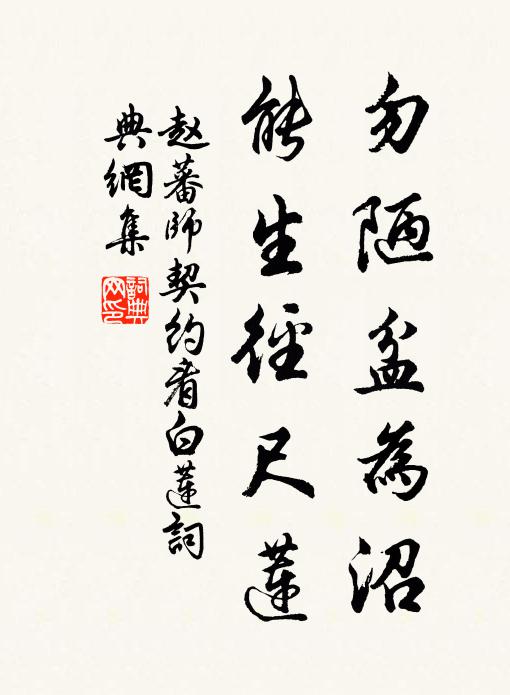 勿陋盆為沼
能生徑尺蓮
赵蕃師契约看白蓮詞
典網集
詞典网印